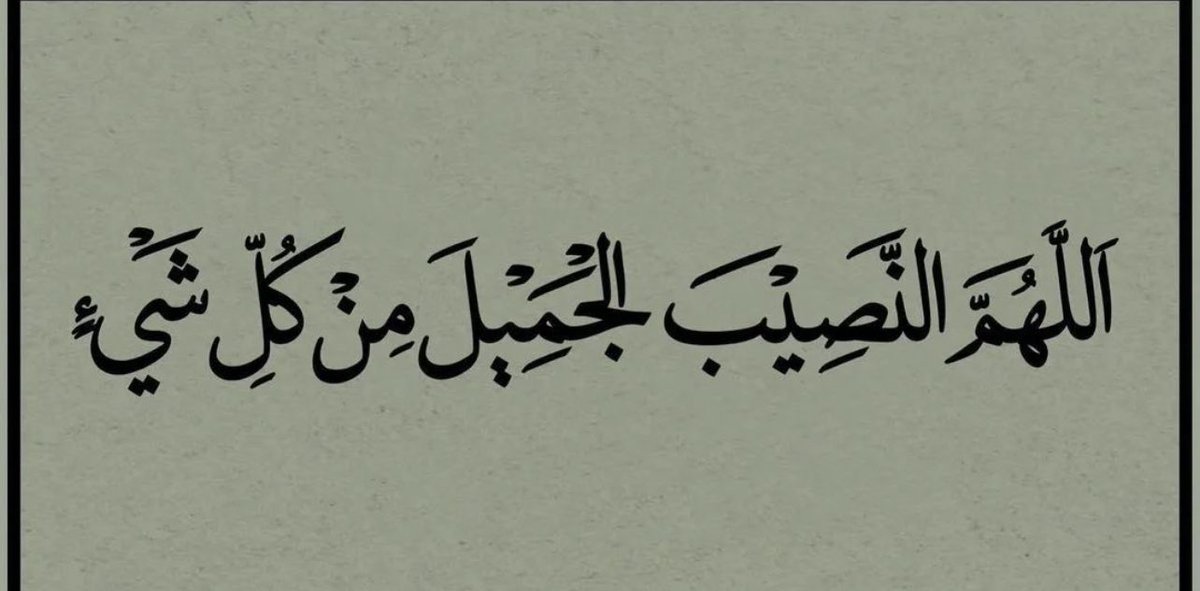 اَللَّهُمَّ النَّصِيْبَ الْجَمِيْلَ مِنْ كُلِّ شَيْءٍ